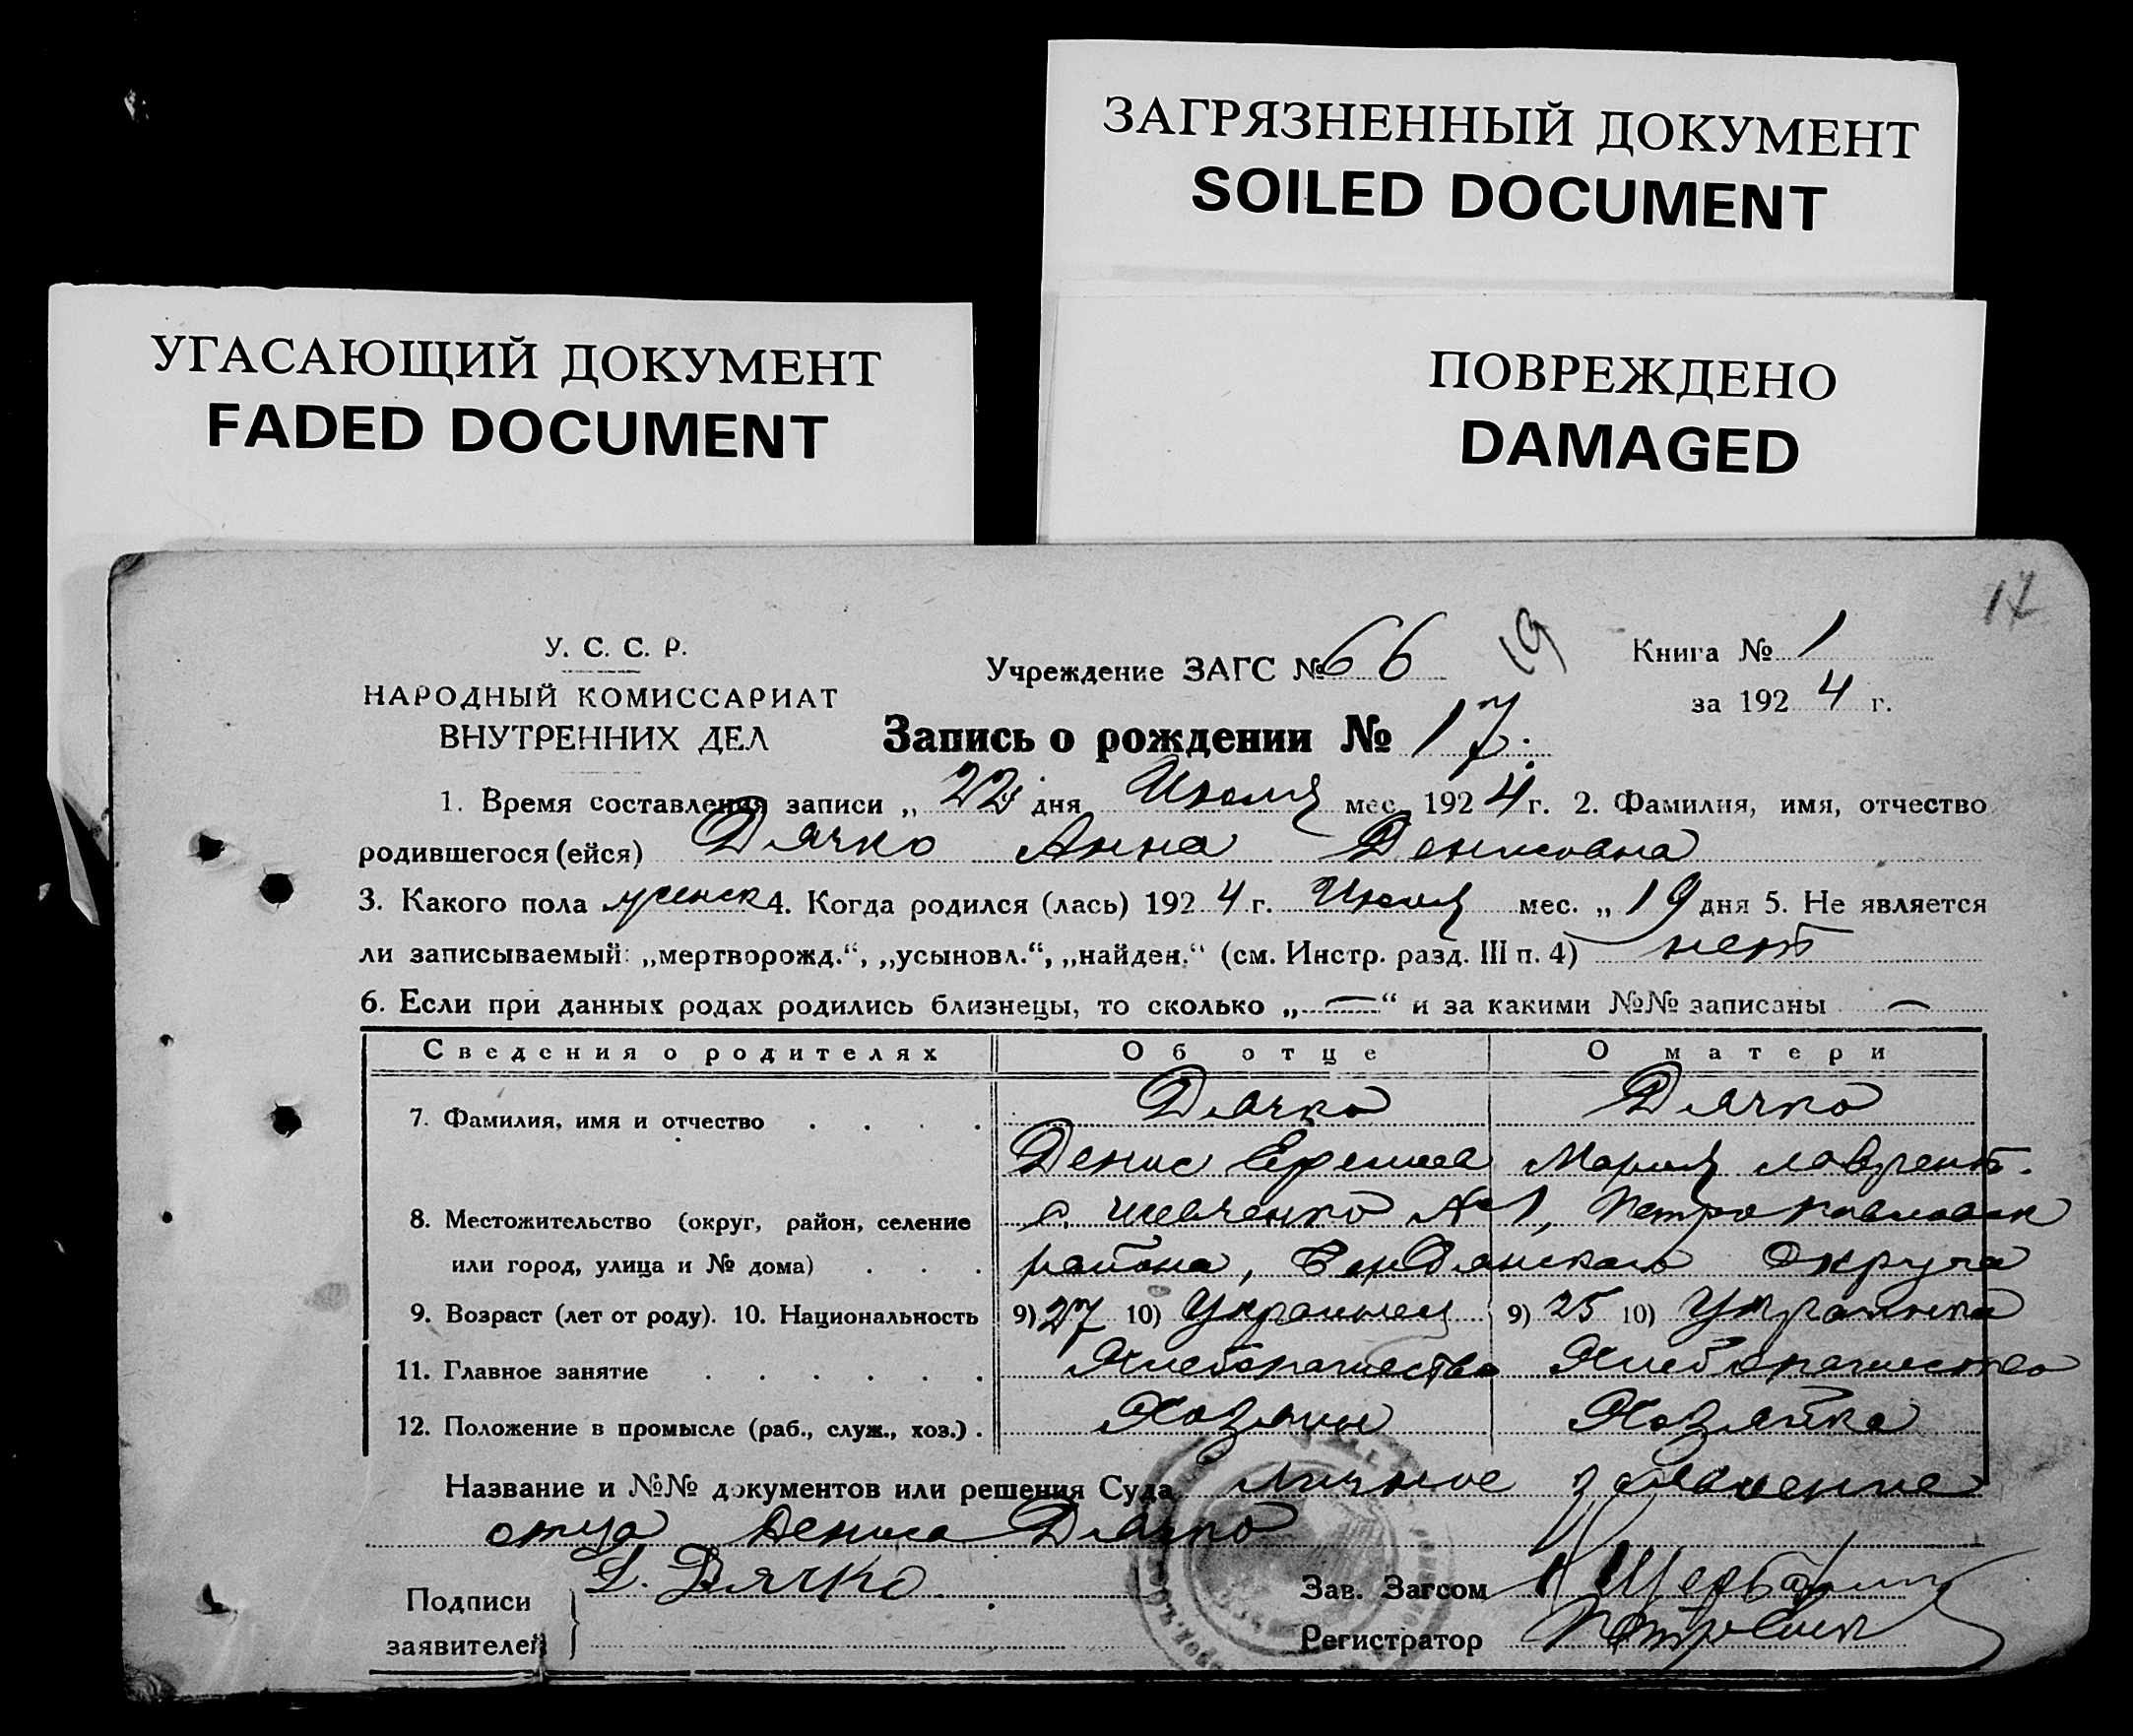 ЗАГРЯЗНЕННЫЙ ДОКУМЕНТ
SOILED DOCUMENT
УГАСАЮЩИЙ ДОКУМЕНТ
FADED DOCUMENT
ПОВРЕЖДЕНО
DAMAGED
17
У. С. С. Р.
НАРОДНЫЙ КОМИССАРИАТ
ВНУТРЕННИХ ДЕЛ
Учреждение ЗАГС № 66
19
Книга № 1
за 1924 г.
Запись о рождении № 17.
1. Время составления записи „ 22 дня Июля мес. 1924 г. 2. Фамилия, имя, отчество
родившегося (ейся) Дячко Анна Денисовна
3. Какого пола женск 4. Когда родился (лась) 1924 г. Июля мес. „ 19 дня 5. Не является
ли записываемый: „мертворожд.“, „усыновл.“, „найден.“ (см. Инстр. разд. III п. 4) нет
6. Если при данных родах родились близнецы, то сколько „—“ и за какими №№ записаны —
Сведения о родителях Об отце О матери
7. Фамилия, имя и отчество Дячко Дячко
Денис Мария Лаврент.
8. Местожительство (округ, район, селение с. Шевченко № 1, Петропавловск
или город, улица и № дома) района, Бердянского Округа
9. Возраст (лет от роду). 10. Национальность 9) 27 10) Украинец 9) 25 10) Украинка
11. Главное занятие Хлебопашество Хлебопашество
12. Положение в промысле (раб., служ., хоз.) Хозяин Хозяйка
Название и №№ документов или решения Суда Личное заявление
отца Дениса Дячко
Подписи
заявителей
Д. Дячко
Зав. Загсом
Регистратор